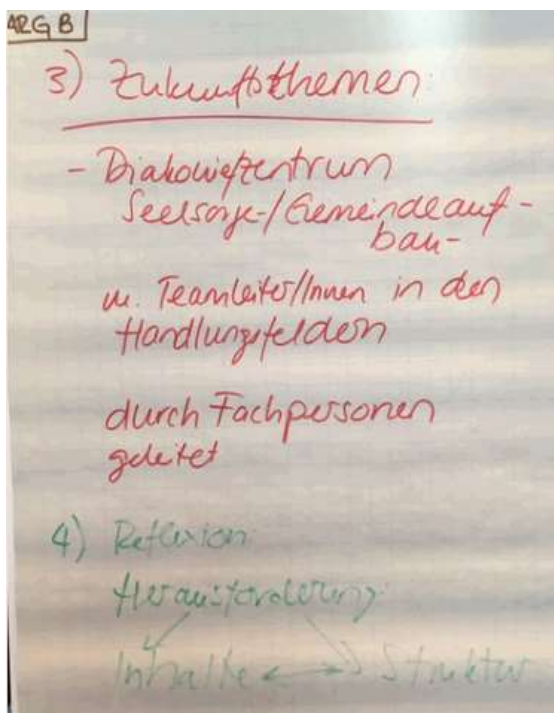 ARG B
3) Zukunftsthemen:
- Diakoniezentrum
Seelsorge-/Gemeindeauf-
bau-
m. Teamleiter/Innen in den
Handlungsfeldern
durch Fachpersonen
geleitet
4) Reflexion:
Herausforderung:
Inhalte ↔ Struktur